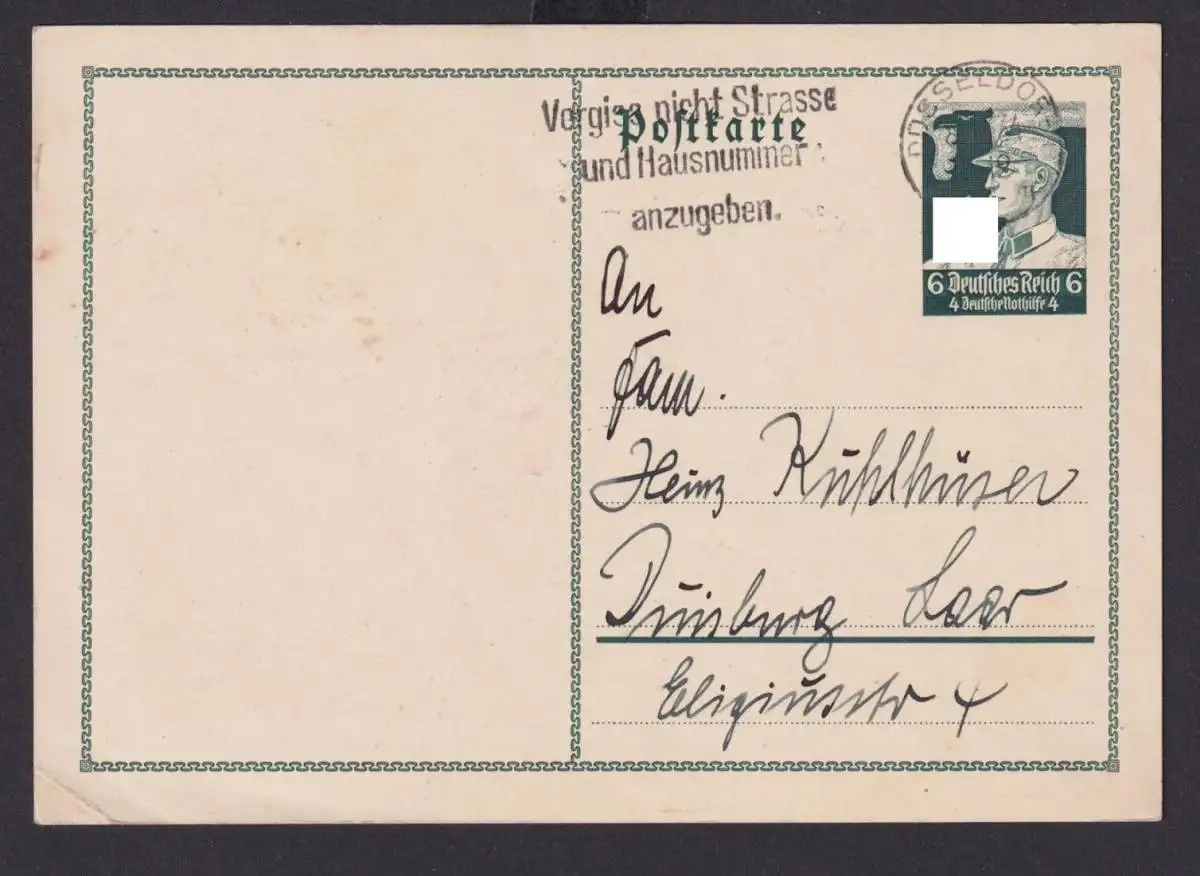 Vergiss nicht Strasse
und Hausnummer
anzugeben.
Postkarte
DÜSSELDORF
6 Deutsches Reich 6
4 Deutsche Nothilfe 4
An
Fam.
Heinz Kuhlhüser
Duisburg Laar
Eligiusstr 4